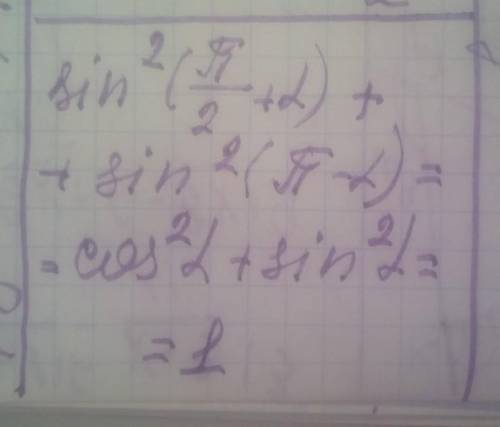 sin²(π/2 + α) +
+ sin²(π - α) =
= cos²α + sin²α =
= 1